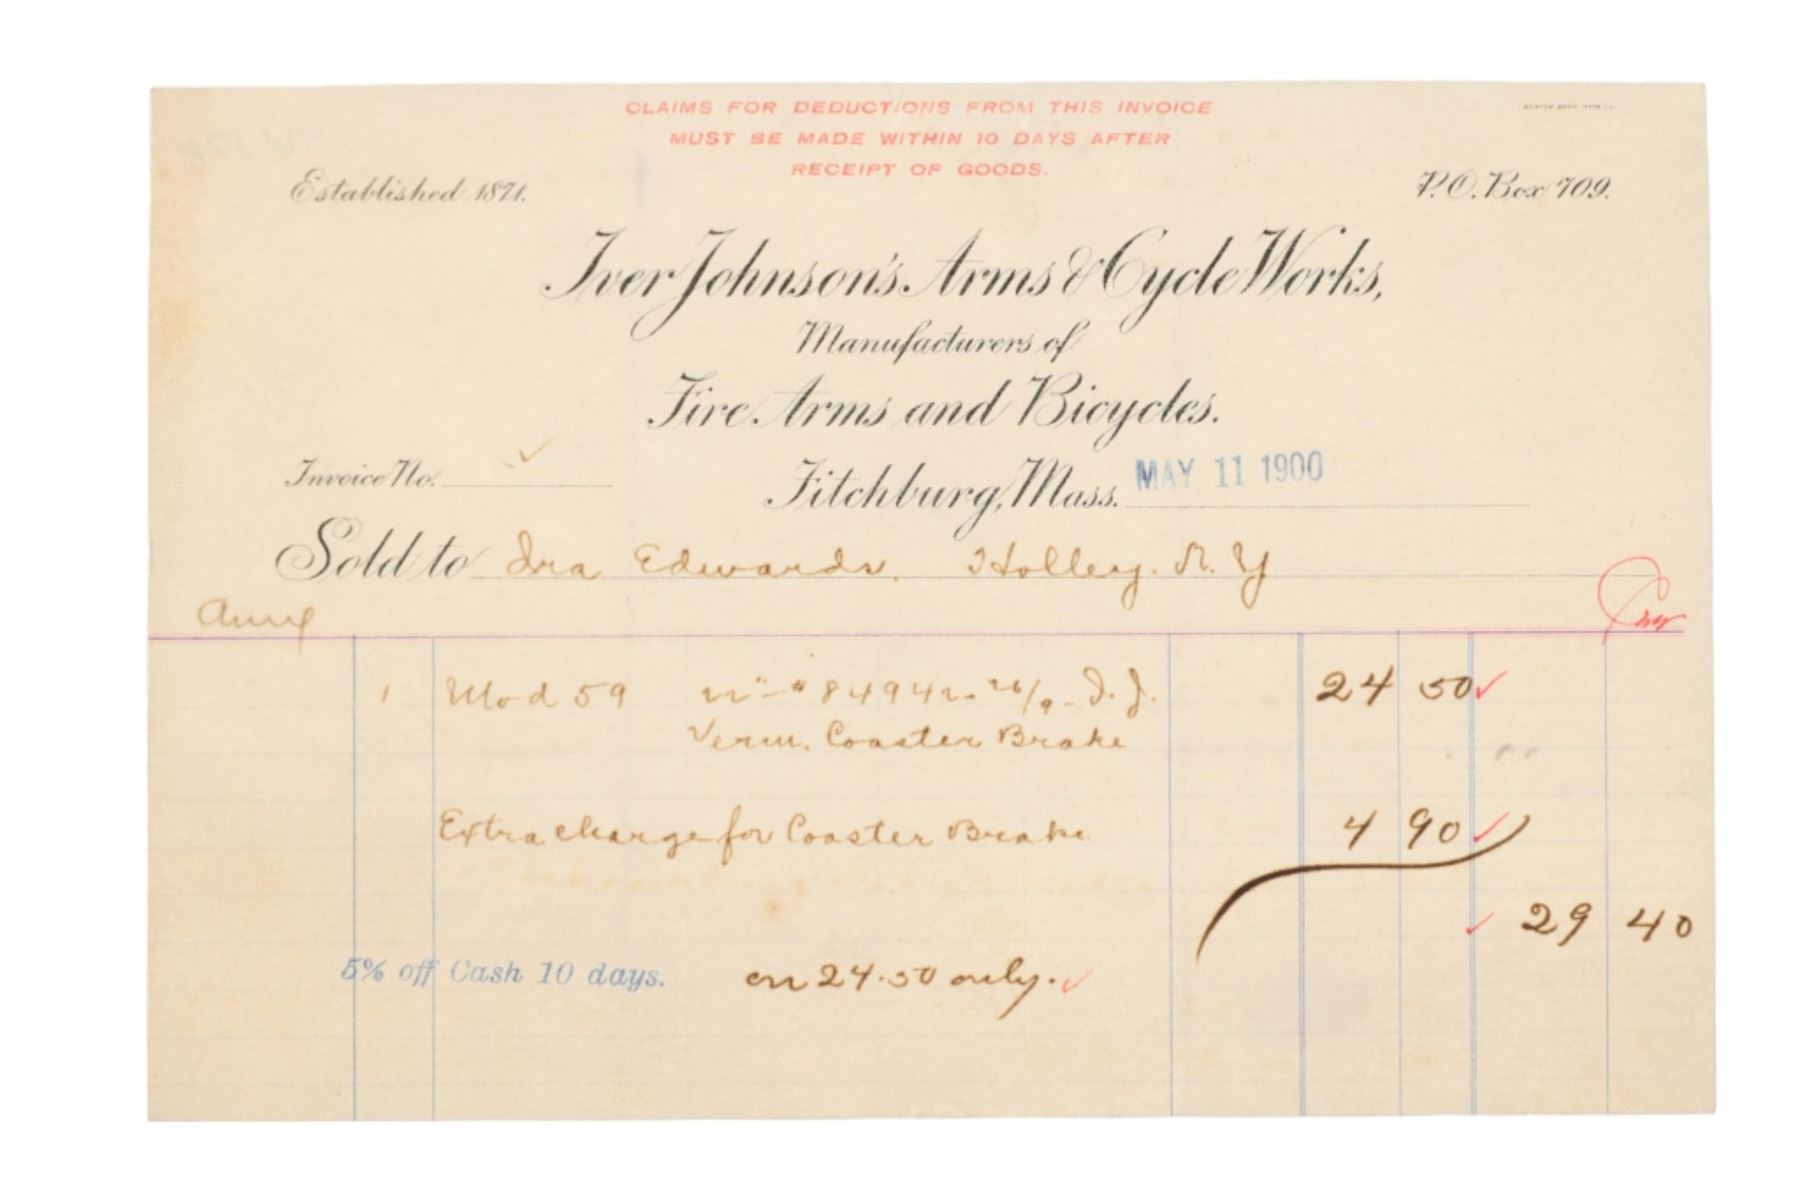 CLAIMS FOR DEDUCTIONS FROM THIS INVOICE
MUST BE MADE WITHIN 10 DAYS AFTER
RECEIPT OF GOODS.
Established 1871.
P.O. Box 709.
Iver Johnson's Arms & Cycle Works,
Manufacturers of
Fire Arms and Bicycles.
Invoice No. ✓
Fitchburg, Mass. MAY 11 1900
Sold to Ira Edwards. Holley. N. Y
1 Mod 59 22" - # 84942 - 26/9 - I. J. 24 50 ✓
Verm. Coaster Brake
Extra charge for Coaster Brake 4 90 ✓
✓ 29 40
5% off Cash 10 days. on 24.50 only. ✓